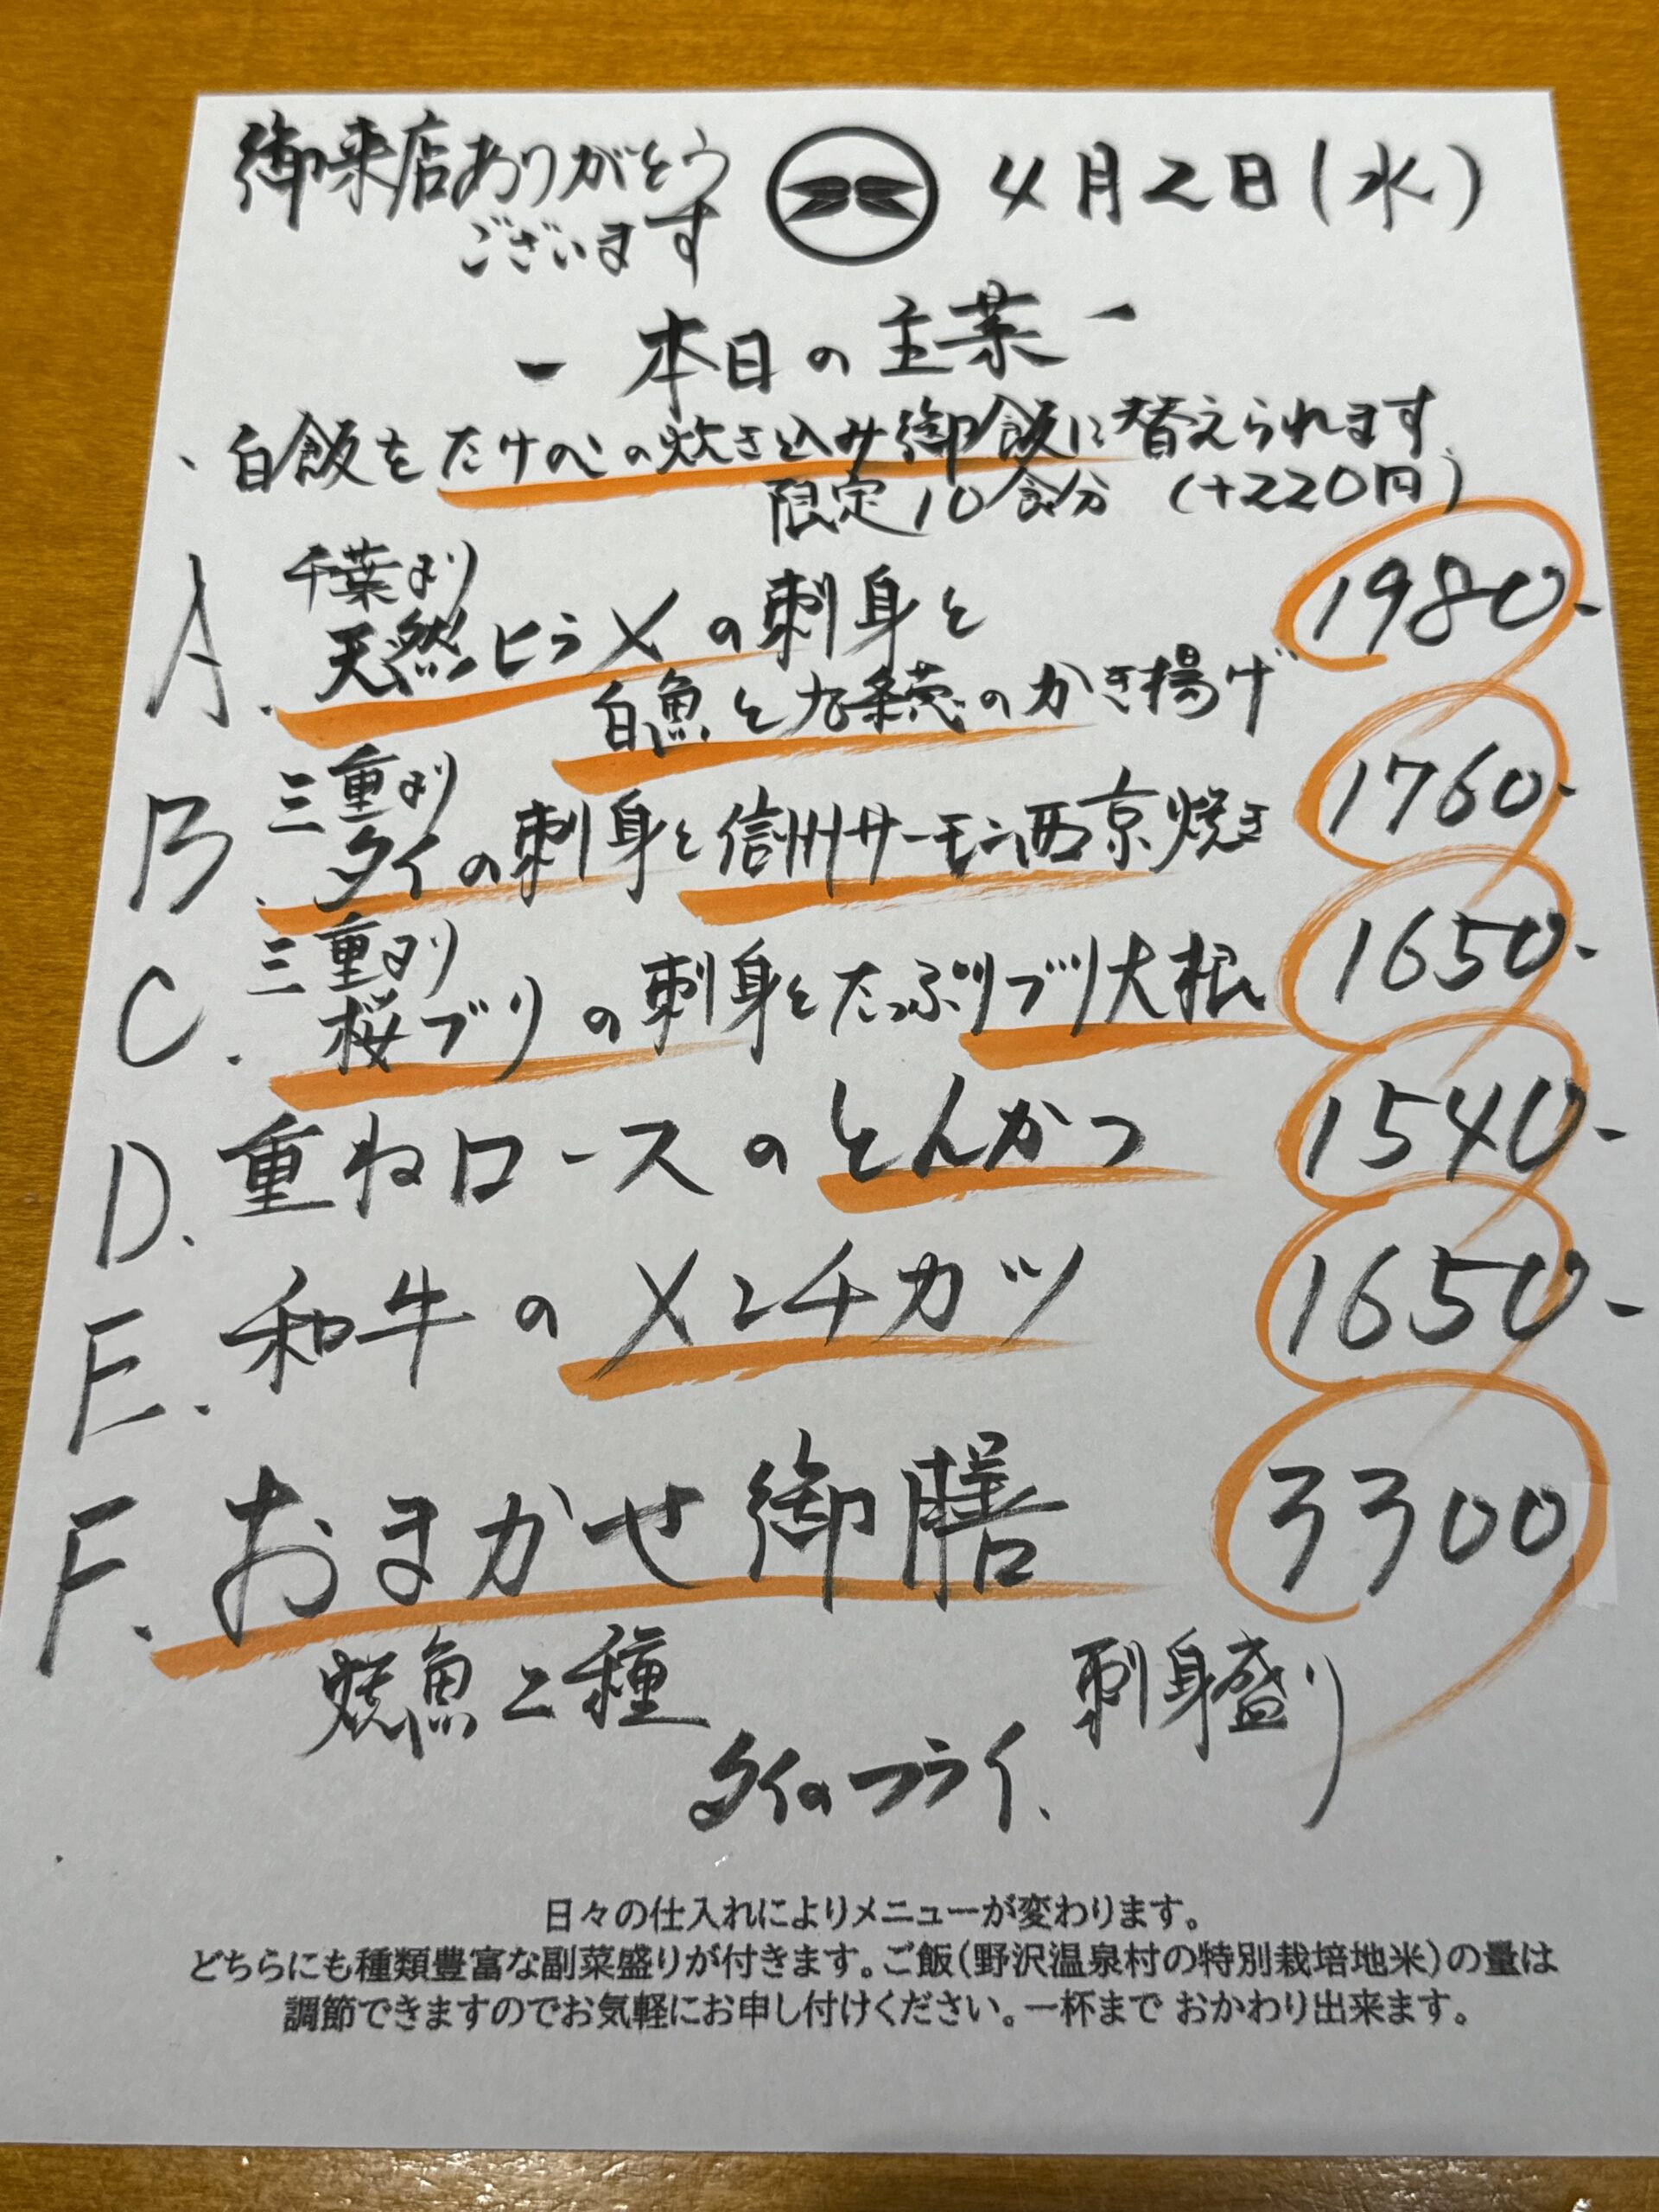 御来店ありがとう
ございます
4月2日(水)
-本日の主菜-
、白飯をたけのこの炊き込み御飯に替えられます
限定10食分 (+220円)
A. 千葉より
天然ヒラメの刺身と 1980-
白魚と九条葱のかき揚げ
B. 三重より
タイの刺身と信州サーモン西京焼き 1760-
C. 三重より
桜ブリの刺身とたっぷりブリ大根 1650-
D. 重ねロースのとんかつ 1540-
E. 和牛のメンチカツ 1650-
F. おまかせ御膳 3300
焼魚二種 刺身盛り
タイのフライ、
日々の仕入れによりメニューが変わります。
どちらにも種類豊富な副菜盛りが付きます。ご飯(野沢温泉村の特別栽培地米)の量は
調節できますのでお気軽にお申し付けください。一杯まで おかわり出来ます。